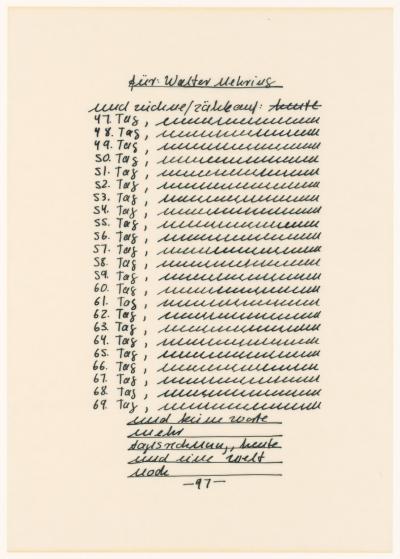 für: Walter Mehring
und zeichne/zähle auf: heute
47. Tag,
48. Tag,
49. Tag,
50. Tag,
51. Tag,
52. Tag,
53. Tag,
54. Tag,
55. Tag,
56. Tag,
57. Tag,
58. Tag,
59. Tag,
60. Tag,
61. Tag,
62. Tag,
63. Tag,
64. Tag,
65. Tag,
66. Tag,
67. Tag,
68. Tag,
69. Tag,
und keine worte
mehr
tagsrechnung,, heute
und eine welt
noch
—97—